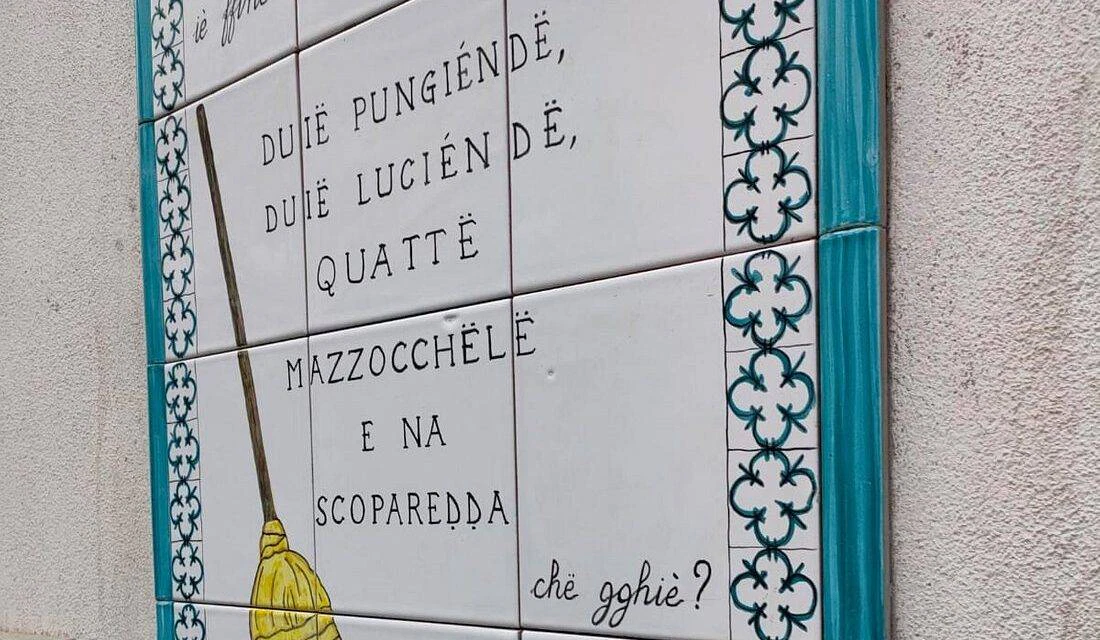 iè
DUIË PUNGIÉNDË,
DUIË LUCIÉNDË,
QUATTË
MAZZOCCHËLË
E NA
SCOPAREḌḌA
chë gghiè?